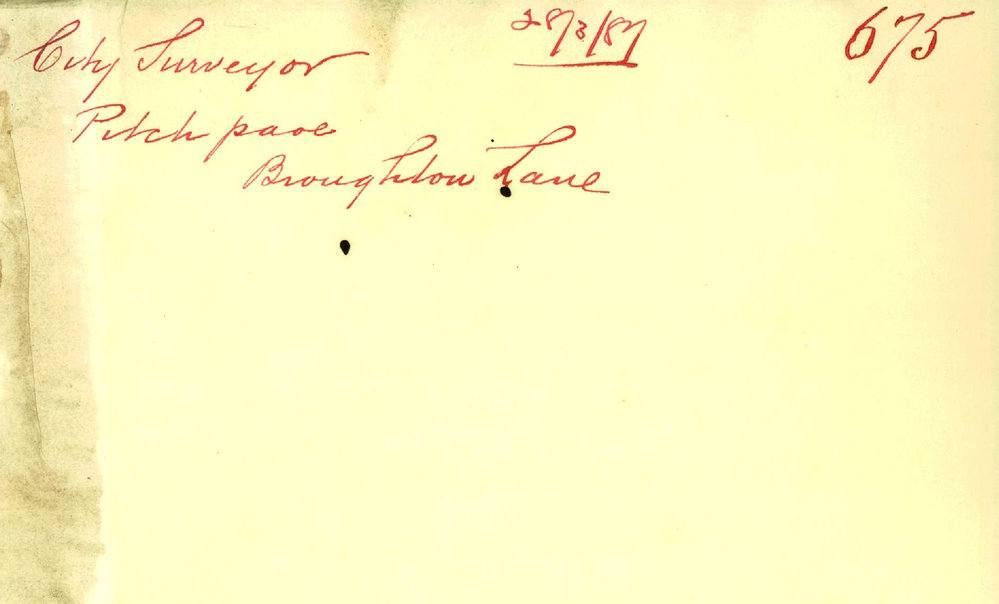 28/3/87
675
City Surveyor
Pitch pave
Broughton Lane